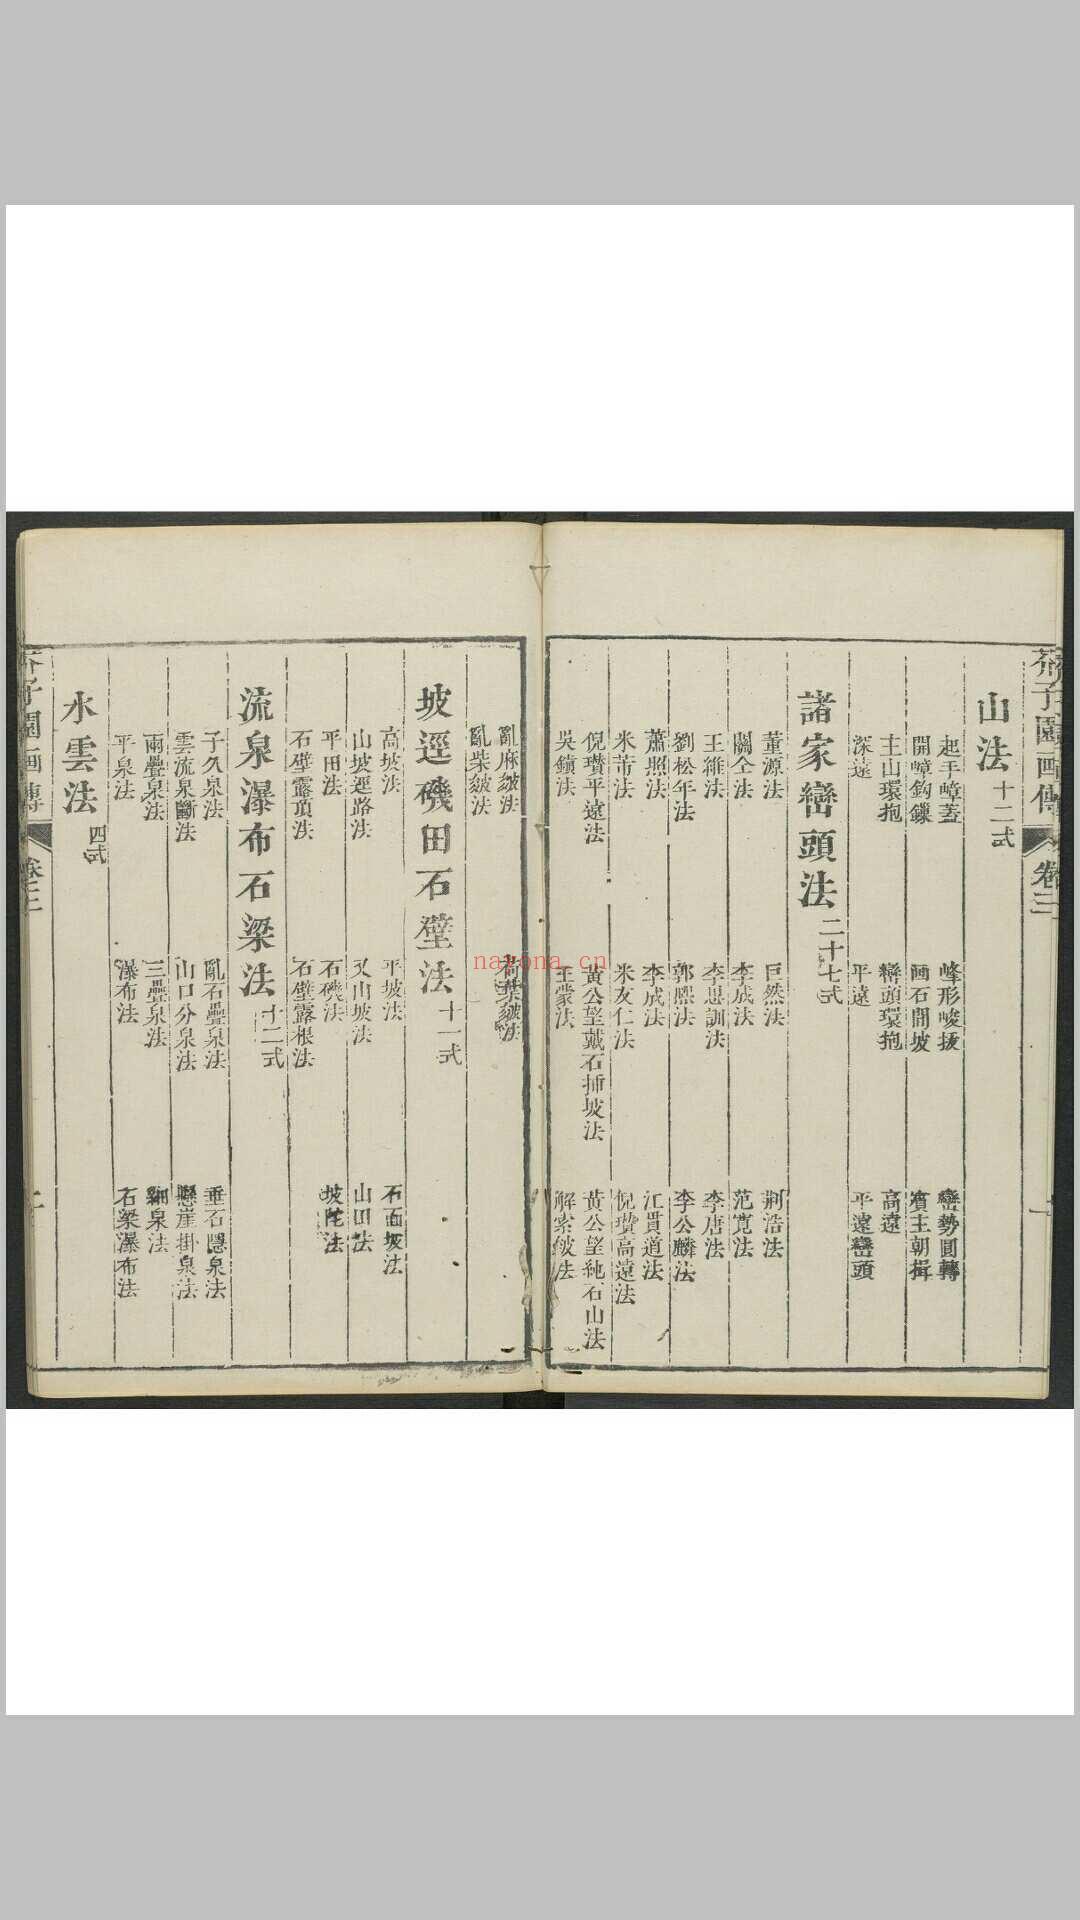 芥子園畫傳 卷三
山法 十二式
起手嶂蓋 峰形峻拔 巒勢圓轉
開嶂鈎鏁 画石間坡 賓主朝揖
主山環抱 巒頭環抱 高遠
深遠 平遠 平遠巒頭
諸家巒頭法 二十七式
董源法 巨然法 荆浩法
關仝法 李成法 范寬法
王維法 李思訓法 李唐法
劉松年法 郭熙法 李公麟法
蕭照法 李成法 江貫道法
米芾法 米友仁法 倪瓚高遠法
倪瓚平遠法 黃公望戴石揷坡法 黃公望純石山法
吳鎮法 王蒙法 解索皴法
亂麻皴法 荷葉皴法
亂柴皴法
坡逕磯田石壁法 十一式
高坡法 平坡法 石面坡法
山坡逕路法 乂山坡法 山田法
平田法 石磯法 坡陀法
石壁露頂法 石壁露根法
流泉瀑布石梁法 十二式
子久泉法 亂石疊泉法 垂石隱泉法
雲流泉斷法 山口分泉法 懸崖掛泉法
兩疊泉法 三疊泉法 細泉法
平泉法 瀑布法 石梁瀑布法
水雲法 四式
芥子園画傳 卷三
nayona.cn